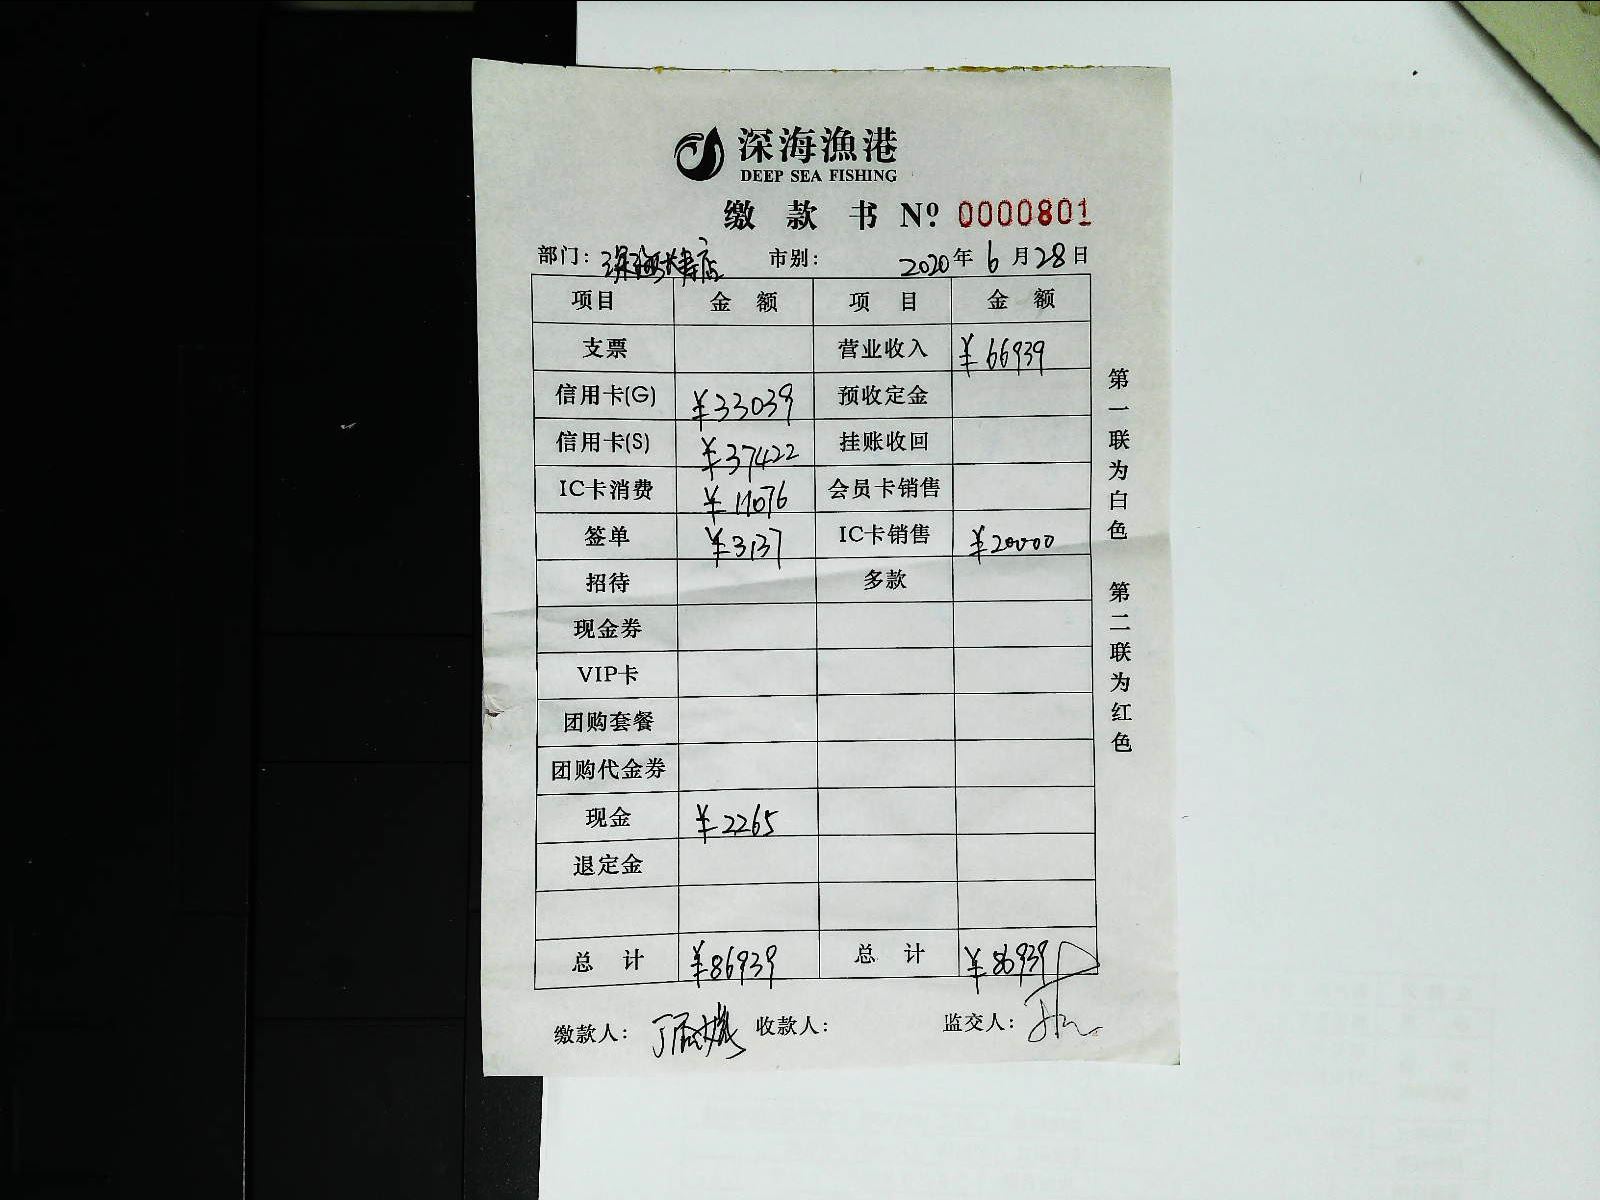 深海漁港
DEEP SEA FISHING
缴款书 Nº 0000801
部门: 市别: 2020年6月28日
项目 金额 项目 金额
支票 营业收入 ¥66939
信用卡(G) ¥33039 预收定金
信用卡(S) ¥37422 挂账收回
IC卡消费 ¥11076 会员卡销售
签单 ¥3137 IC卡销售 ¥20000
招待 多款
现金券
VIP卡
团购套餐
团购代金券
现金 ¥2265
退定金
总计 ¥86939 总计 ¥86939
缴款人: 丁 收款人: 监交人:
第一联为白色 第二联为红色